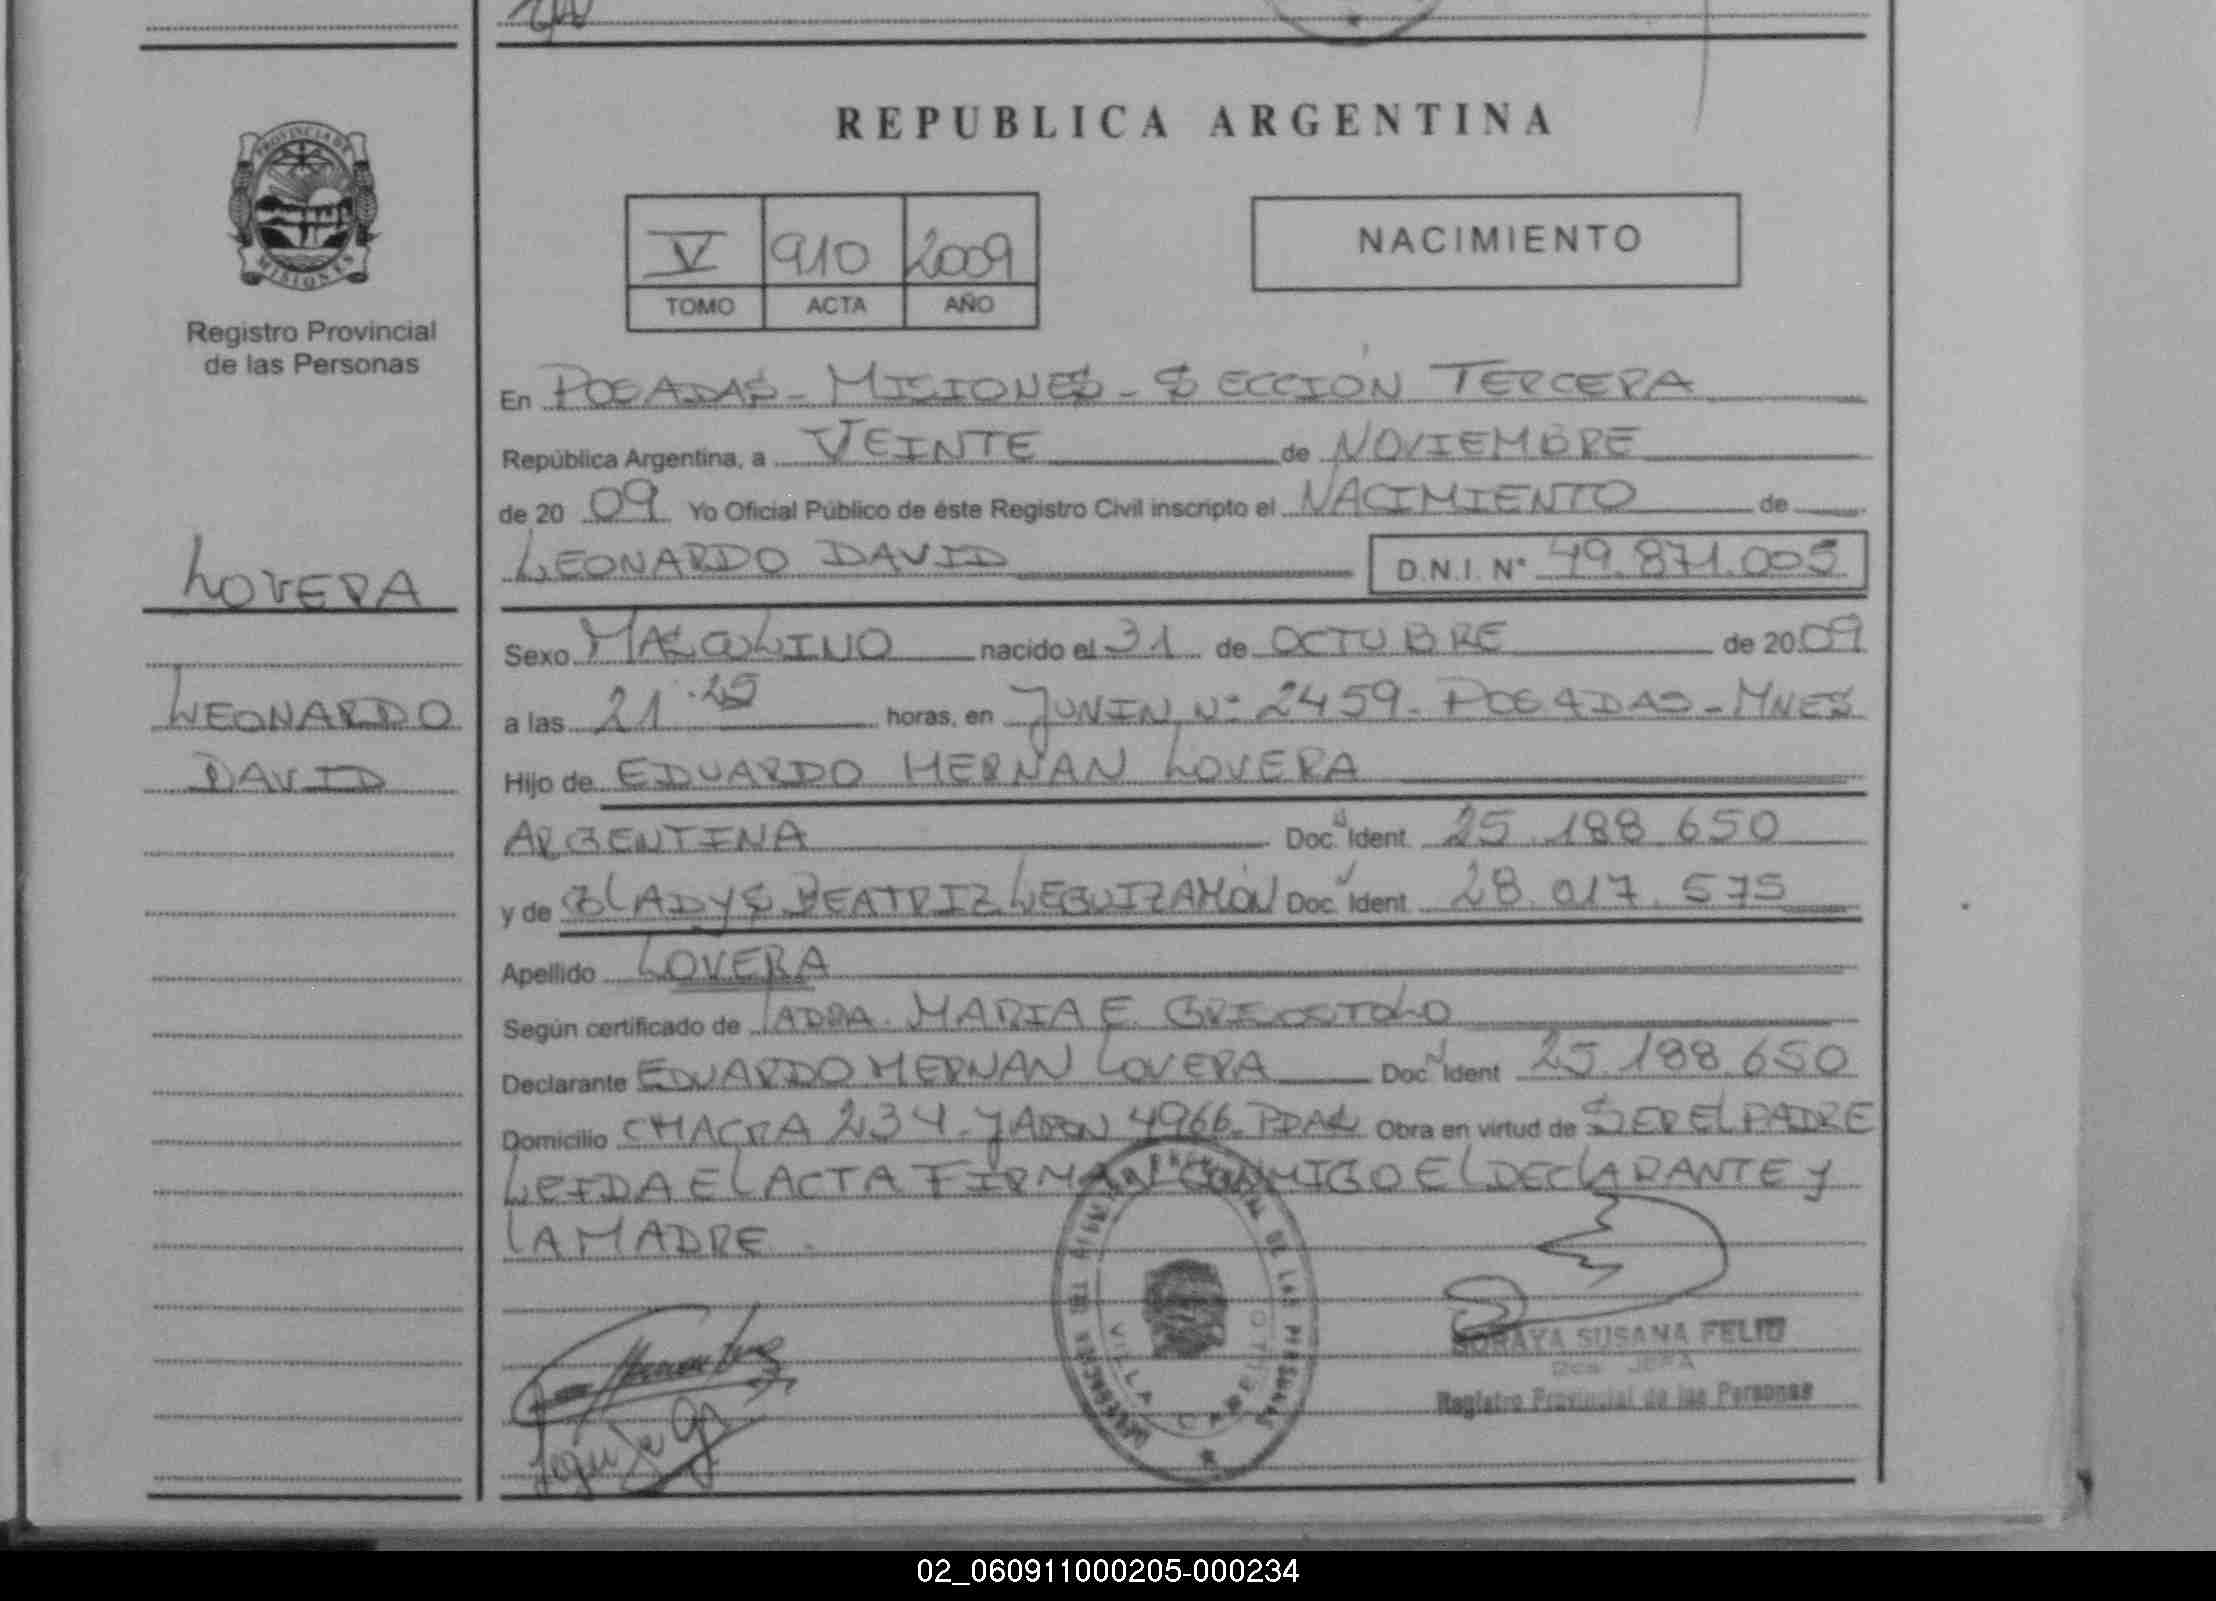 REPUBLICA ARGENTINA
PROVINCIA DE MISIONES
Registro Provincial
de las Personas
V 910 2009
TOMO ACTA AÑO
NACIMIENTO
En POSADAS - MISIONES - SECCIÓN TERCERA
República Argentina, a VEINTE de NOVIEMBRE
de 20 09 Yo Oficial Público de éste Registro Civil inscripto el NACIMIENTO de
LEONARDO DAVID D.N.I. Nº 49.871.005
LOVERA
LEONARDO
DAVID
Sexo MASCULINO nacido el 31 de OCTUBRE de 20 09
a las 21:25 horas, en JUNIN Nº 2459 - POSADAS - MNES
Hijo de EDUARDO HERNAN LOVERA
ARGENTINA Doc. Ident. 25.188.650
y de GLADYS BEATRIZ LEGUIZAMÓN Doc. Ident. 28.017.575
Apellido LOVERA
Según certificado de MARIA E.
Declarante EDUARDO HERNAN LOVERA Doc. Ident 25.188.650
Domicilio CHACRA 234 - 4966 - PDAS Obra en virtud de SER EL PADRE
LEIDA EL ACTA FIRMAN CONMIGO EL DECLARANTE Y
LA MADRE.
VILLA
SORAYA SUSANA FELIU
JEFA
Registro Provincial de las Personas
02_060911000205-000234